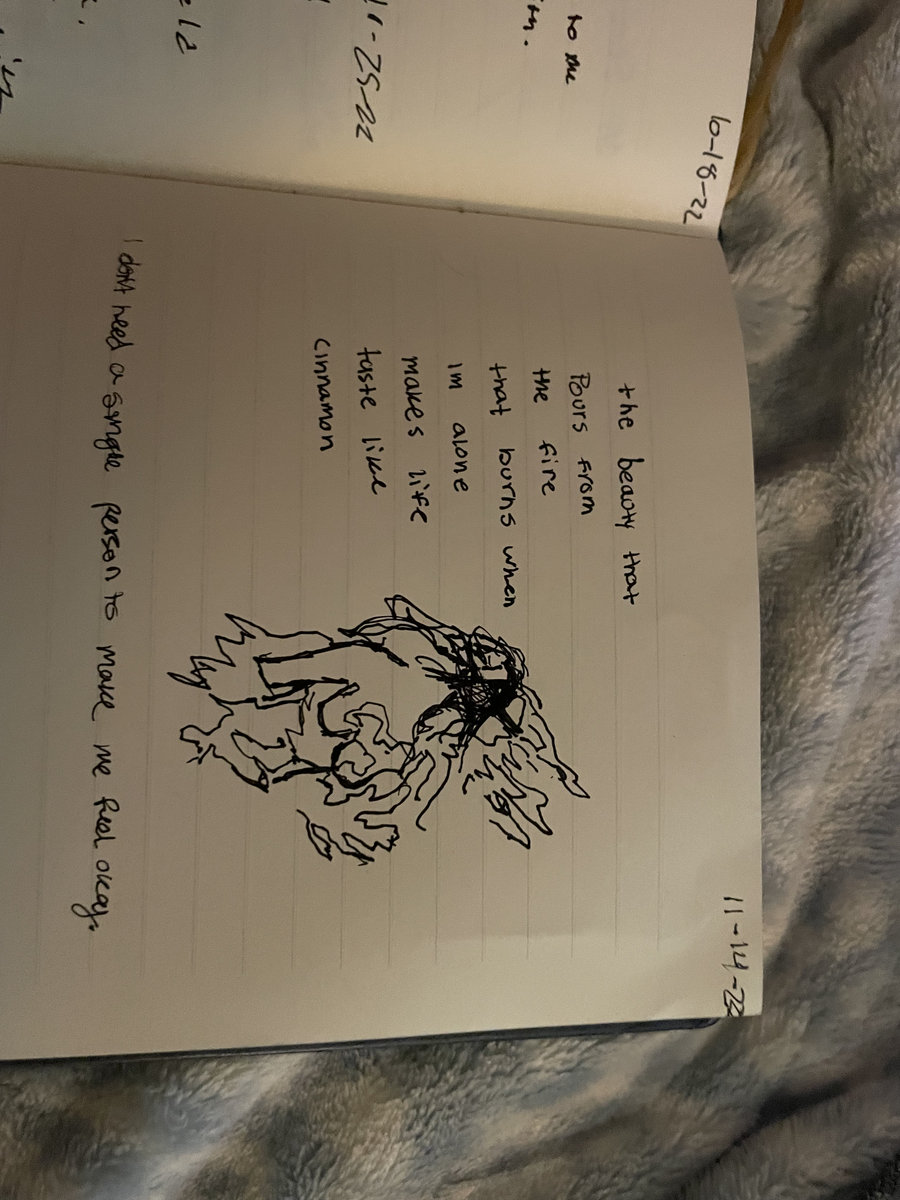 to me
6-18-22
11-25-22
11-14-22
the beauty that
Pours from
the fire
that burns when
im alone
makes life
taste like
cinnamon
I dont need a single person to make me feel okay.